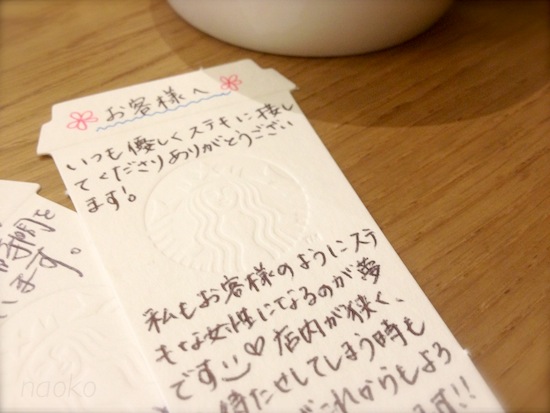 お客様へ
いつも優しくステキに接し
てくださりありがとうござい
ます!
私もお客様のようにステ
キな女性になるのが夢
です♡店内が狭く、
待たせしてしまう時も
これからもよろ
ます!!
時間を
います。
naoko